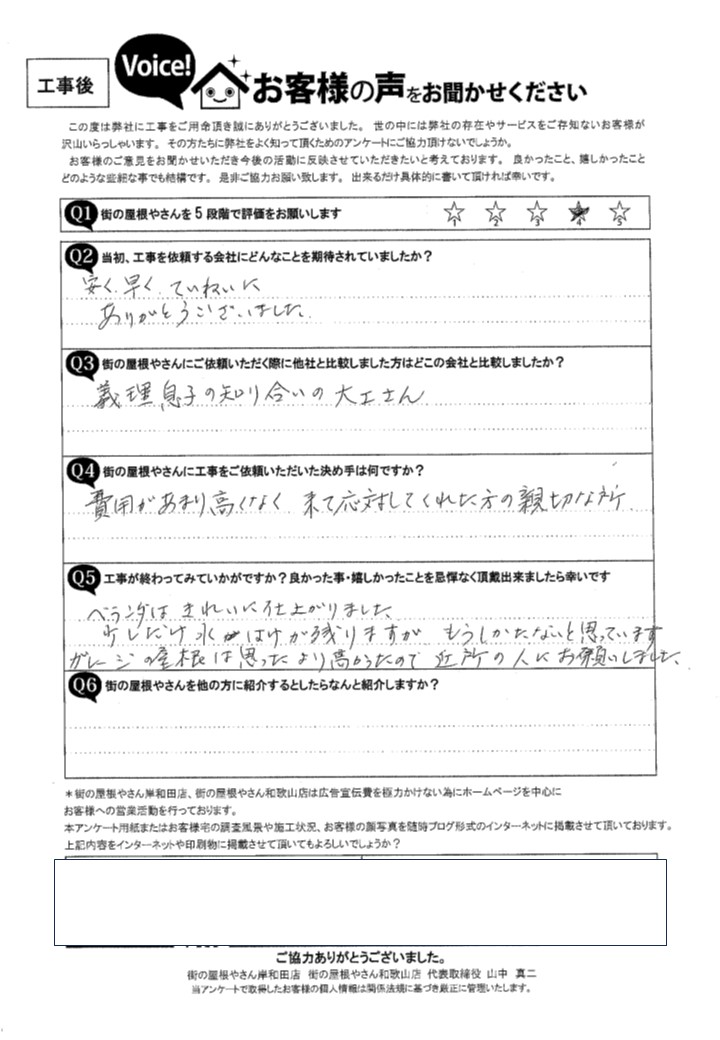 工事後
Voice!
お客様の声をお聞かせください
この度は弊社に工事をご用命頂き誠にありがとうございました。 世の中には弊社の存在やサービスをご存知ないお客様が
沢山いらっしゃいます。 その方たちに弊社をよく知って頂くためのアンケートにご協力頂けないでしょうか。
お客様のご意見をお聞かせいただき今後の活動に反映させていただきたいと考えております。 良かったこと、嬉しかったこと
どのような些細な事でも結構です。 是非ご協力お願い致します。 出来るだけ具体的に書いて頂ければ幸いです。
Q1 街の屋根やさんを5段階で評価をお願いします
1 2 3 4 5
Q2 当初、工事を依頼する会社にどんなことを期待されていましたか？
安く、早く、ていねいに
ありがとうございました。
Q3 街の屋根やさんにご依頼いただく際に他社と比較しました方はどこの会社と比較しましたか？
義理息子の知り合いの大工さん
Q4 街の屋根やさんに工事をご依頼いただいた決め手は何ですか？
費用があまり高くなく 来て応対してくれた方の親切な所
Q5 工事が終わってみていかがですか？良かった事・嬉しかったことを忌憚なく頂戴出来ましたら幸いです
ベランダは きれいに仕上がりました
少しだけ水はけが残りますが もうしかたないと思っています
ガレージの屋根は思ったより高かったので 近所の人にお願いしました、
Q6 街の屋根やさんを他の方に紹介するとしたらなんと紹介しますか？
＊街の屋根やさん岸和田店、街の屋根やさん和歌山店は広告宣伝費を極力かけない為にホームページを中心に
お客様への営業活動を行っております。
本アンケート用紙またはお客様宅の調査風景や施工状況、お客様の顔写真を随時ブログ形式のインターネットに掲載させて頂いております。
上記内容をインターネットや印刷物に掲載させて頂いてもよろしいでしょうか？
ご協力ありがとうございました。
街の屋根やさん岸和田店 街の屋根やさん和歌山店 代表取締役 山中 真二
当アンケートで取得したお客様の個人情報は関係法規に基づき厳正に管理いたします。